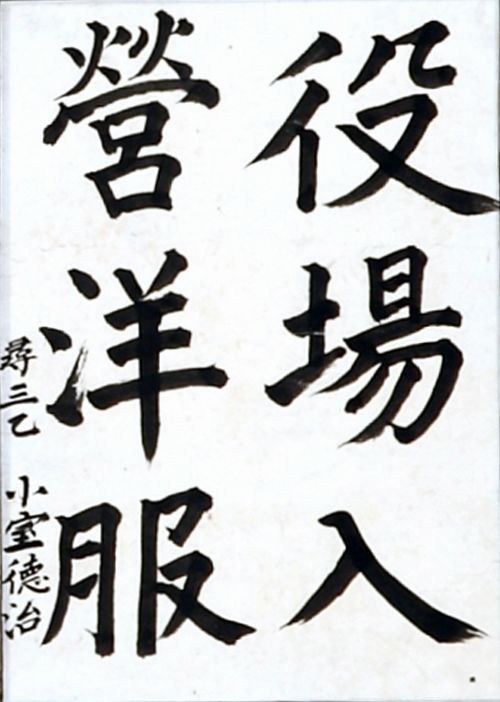 役場入
營洋服
尋三乙 小室德治